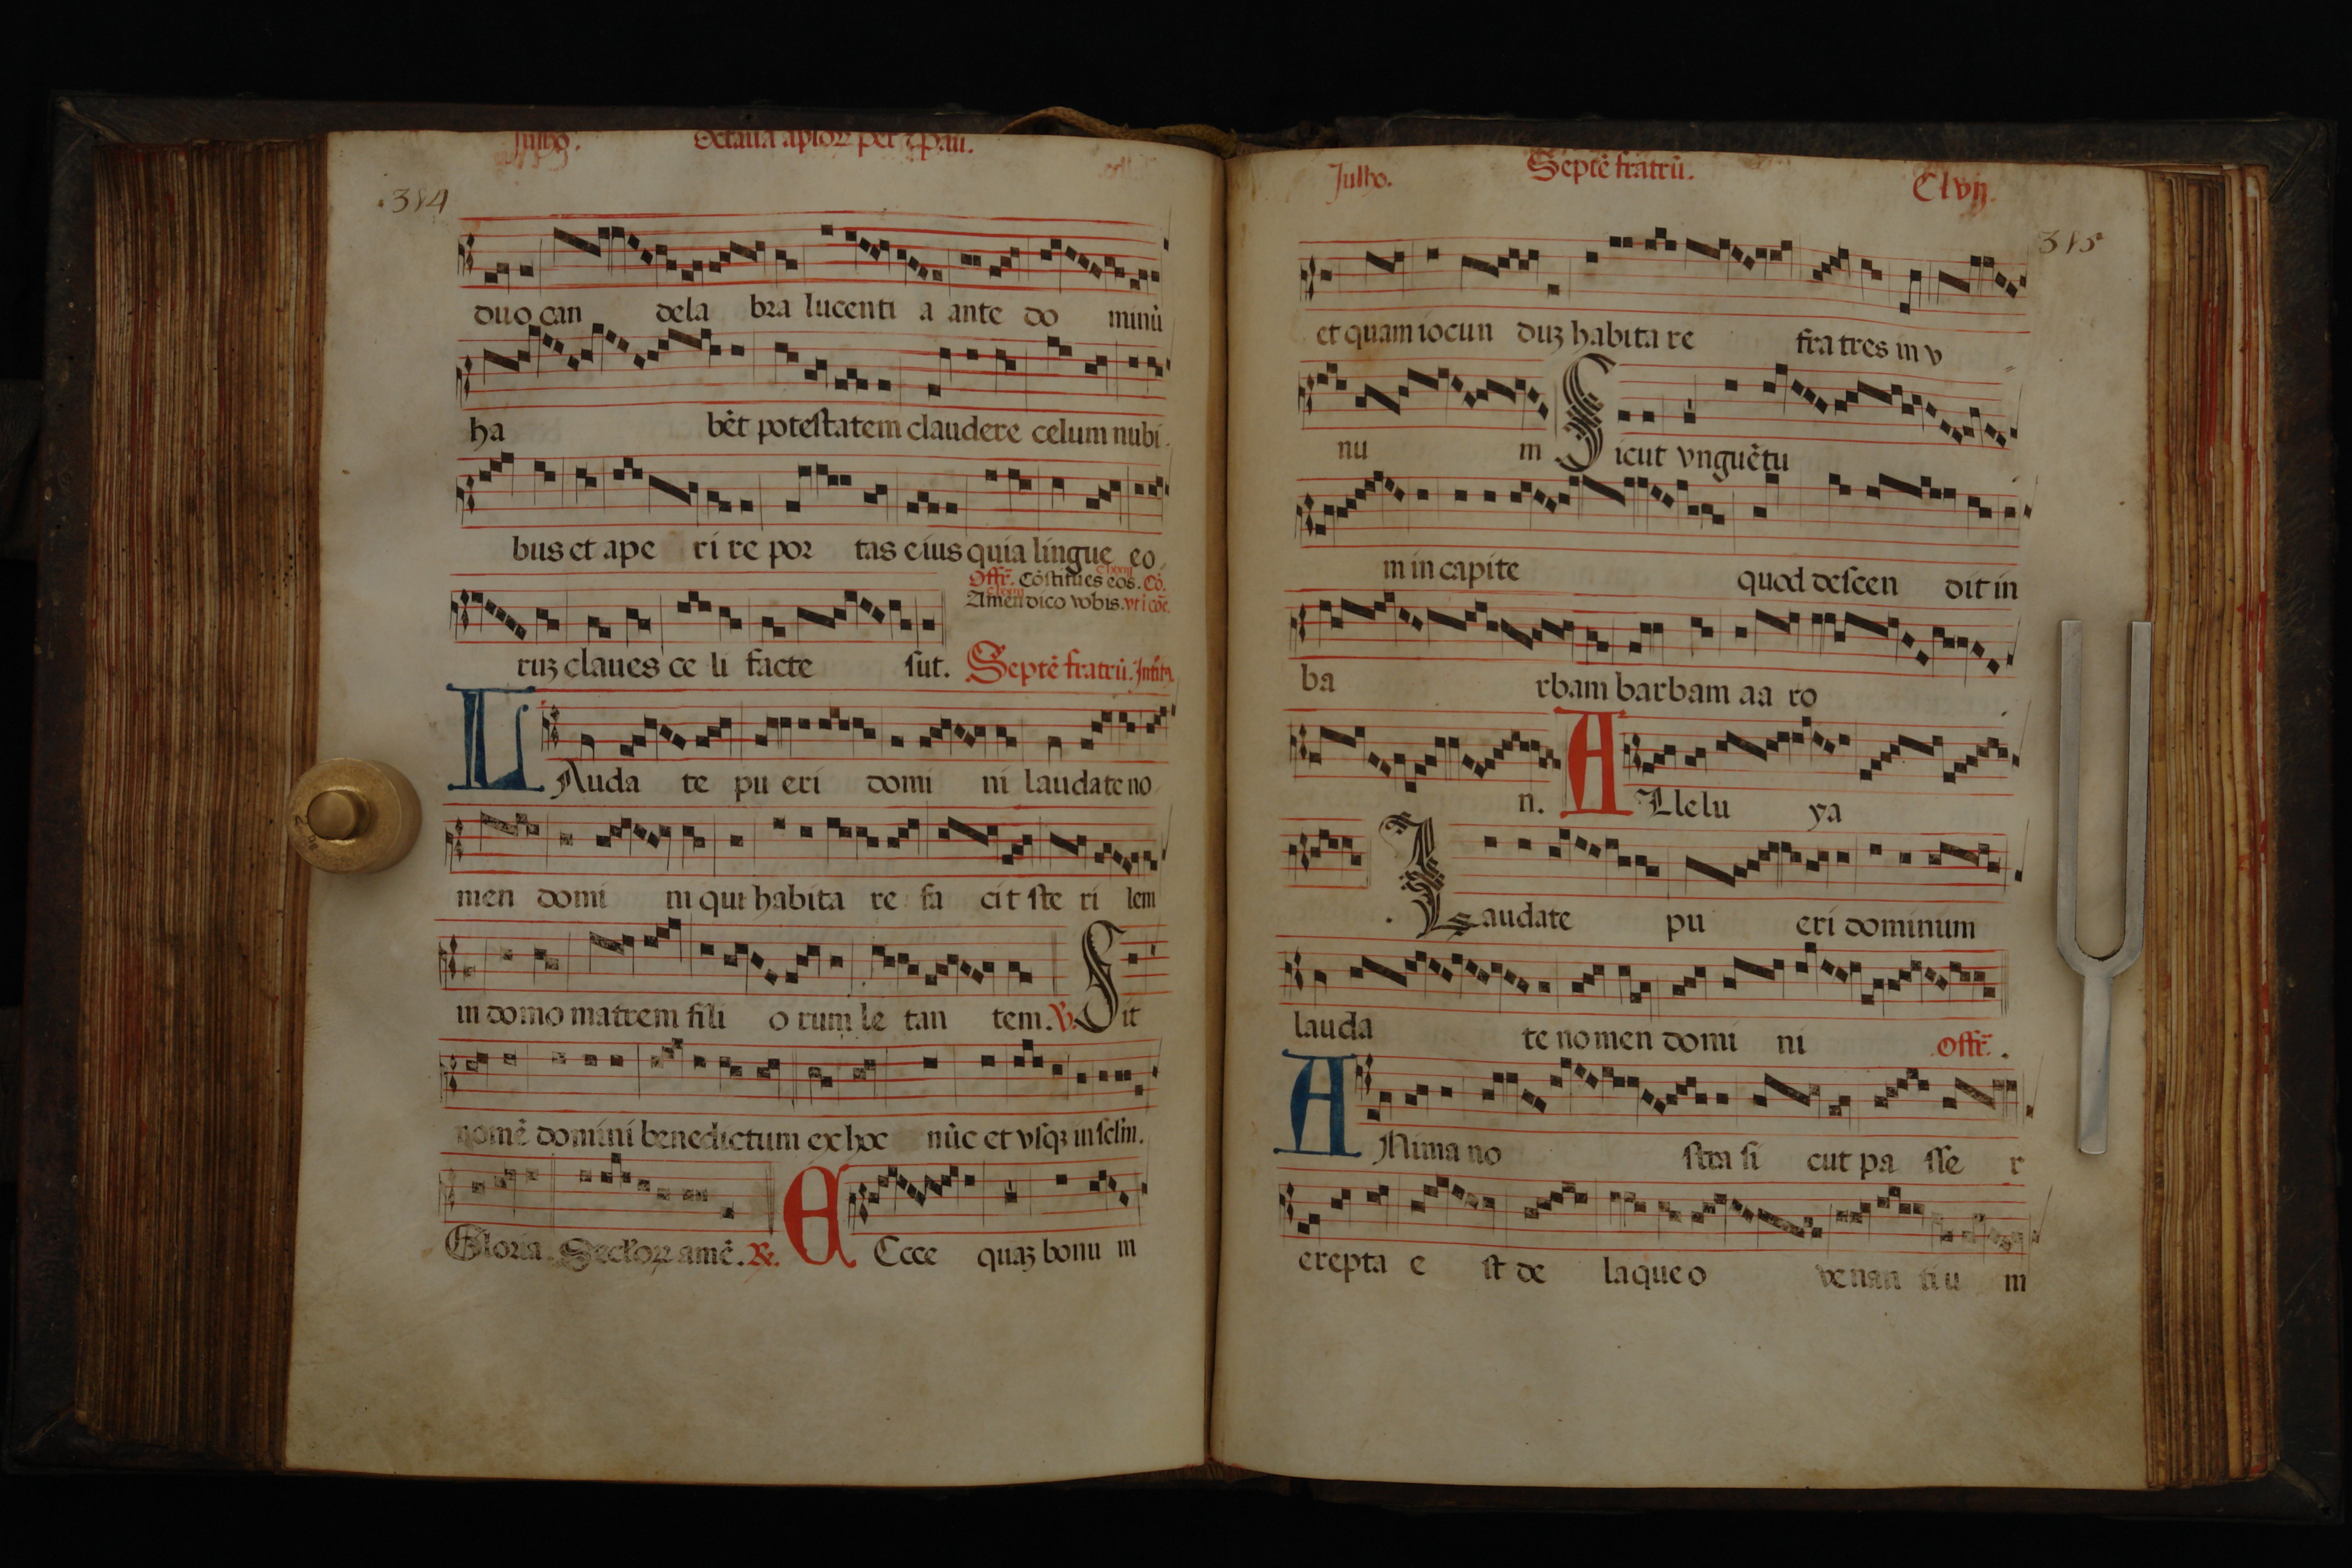 Julho. Octaua aplorꝝ pet ⁊ pau.
.384
duo can dela bra lucenti a ante do minũ
ha bẽt poteſtatem claudere celum nubi
bus et ape ri re por tas eius quia lingue eo
Offr̃. Cõſtitues eos. Cõ.
Amen dico vobis.
ruꝫ claues ce li facte ſũt. Septẽ fratrũ.
LAuda te pu eri domi ni laudate no
men domi ni qui habita re fa cit ſte ri lem
in domo matrem fili o rum le tan tem. ℣. Sit
nomẽ domini benedictum ex hoc nũc et vſqꝫ in ſclm̃.
Gloria. Seclorꝝ amẽ. ℟. ECce quaꝫ bonu m
Julho. Septẽ fratrũ. Clvij.
385
et quam iocun duꝫ habita re fra tres in v
nu m Sicut vnguẽtu
m in capite quod deſcen dit in
ba rbam barbam aa ro
n. ALlelu ya
Laudate pu eri dominum
lauda te nomen domi ni Offr̃.
ANima no ſtra ſi cut pa ſſe r
erepta e ſt de laque o venan tiu m